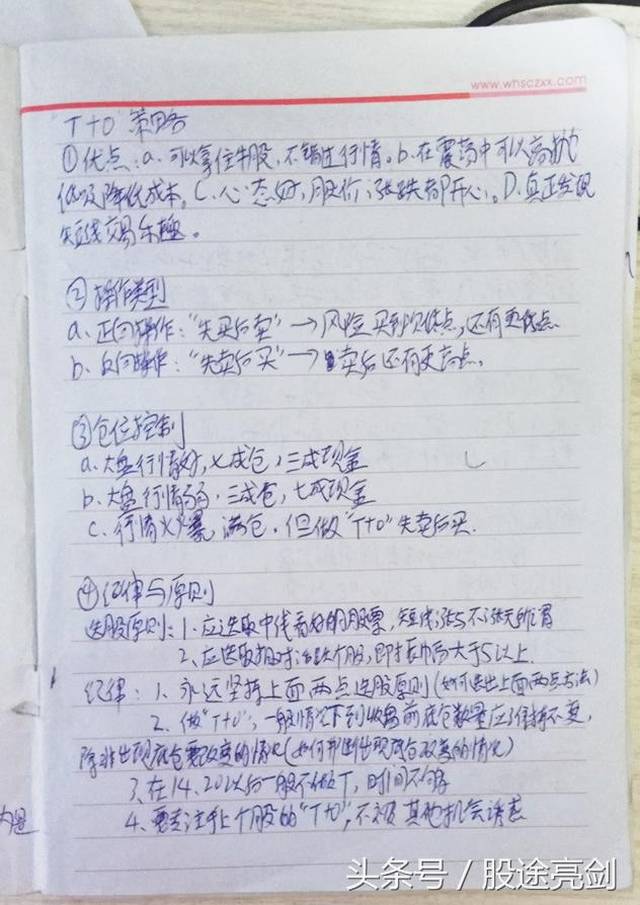 www.whsczxx.com
"T+0"策略
①优点:a、可以拿住牛股,不错过行情。b、在震荡中可以高抛
低吸降低成本。C、心态好,股价涨跌都开心。D、真正发现
短线交易乐趣。
②操作类型
a、正向操作:"先买后卖"→风险买到次低点,还有更低点
b、反向操作:"先卖后买"→卖后还有更高点。
③仓位控制
a、大盘行情好,七成仓,三成现金
b、大盘行情弱,三成仓,七成现金
C、行情火爆,满仓,但做"T+0"先卖后买.
④纪律与原则
选股原则:1、应选取中线看好的股票,短线涨与不涨无所谓
2、应选取相对活跃个股,即振幅高大于5以上.
纪律:1、永远坚持上面两点选股原则(如何选出上面两点方法)
2、做"T+0",一般情况下到收盘前底仓数量应保持不变,
除非出现底仓需改变的情况(如何判断出现底仓改变的情况)
3、在14.20以后一般不做T,时间不够
4、要专注手上个股的"T+0",不被其他机会诱惑
头条号/股途亮剑